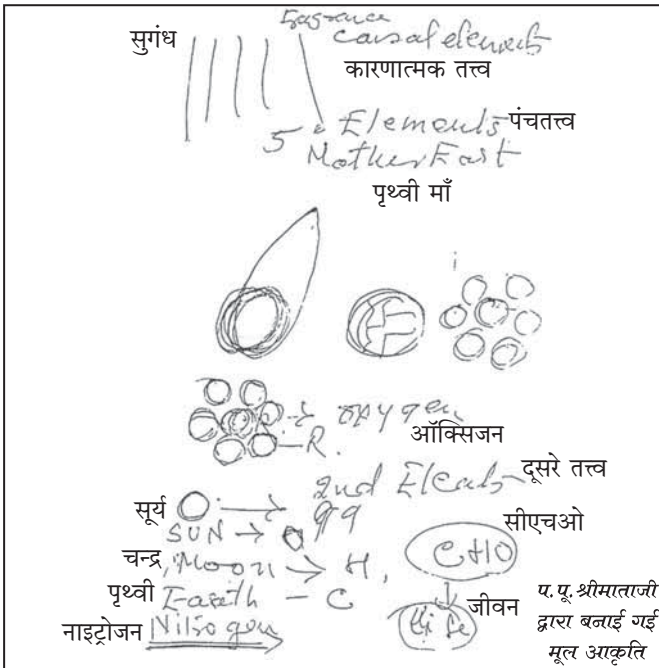 सुगंध fragrance
causal elements
कारणात्मक तत्त्व
5 Elements पंचतत्त्व
Mother Eart
पृथ्वी माँ
oxygen ऑक्सिजन
R.
2nd दूसरे तत्त्व
सूर्य
SUN
सीएचओ
CHO
चन्द्र Moon → H,
पृथ्वी Earth - C
जीवन
नाइट्रोजन
प.पू. श्रीमाताजी
द्वारा बनाई गई
मूल आकृति